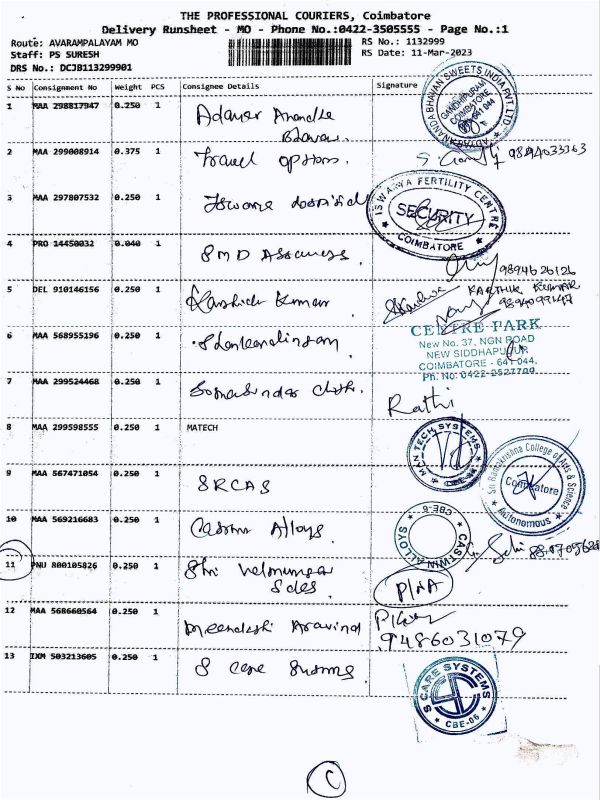 THE PROFESSIONAL COURIERS, Coimbatore
Delivery Runsheet - MO - Phone No.:0422-3505555 - Page No.:1
Route: AVARAMPALAYAM MO
Staff: PS SURESH
DRS No.: DCJB113299901
RS No.: 1132999
RS Date: 11-Mar-2023
S No Consignment No Weight PCS Consignee Details Signature
1 MAA 298817947 0.250 1
ANANDA BHAVAN SWEETS INDIA PVT. LTD.
GANDHIPURAM
COIMBATORE
641 044
2 MAA 299008914 0.375 1 Travel options.
9894033363
3 MAA 297807532 0.250 1
ISWARYA FERTILITY CENTRE
SECURITY
COIMBATORE
4 PRO 14450032 0.040 1 SMD
9894626126
5 DEL 910146156 0.250 1 Kumar
KARTHIK KUMAR
6 MAA 568955196 0.250 1
CENTRE PARK
New No. 37, NGN ROAD
NEW SIDDHAPUR
COIMBATORE - 641 044.
Ph. No: 0422-2527709
7 MAA 299524468 0.250 1
Rathi
8 MAA 299598555 0.250 1 MATECH
MAN TECH SYSTEMS
CBE
9 MAA 567471054 0.250 1 SRCAS
Sri Ramakrishna College of Arts & Science
Coimbatore
Autonomous
10 MAA 569216683 0.250 1 Alloys
CASTWIN ALLOYS
CBE-6
11 PNU 800105826 0.250 1 Shri Velmurugan
Sales
P/NA
12 MAA 568660564 0.250 1 Meenakshi Aravind
9486031079
13 IXM 503213605 0.250 1 S care
S CARE SYSTEMS
CBE-06
C